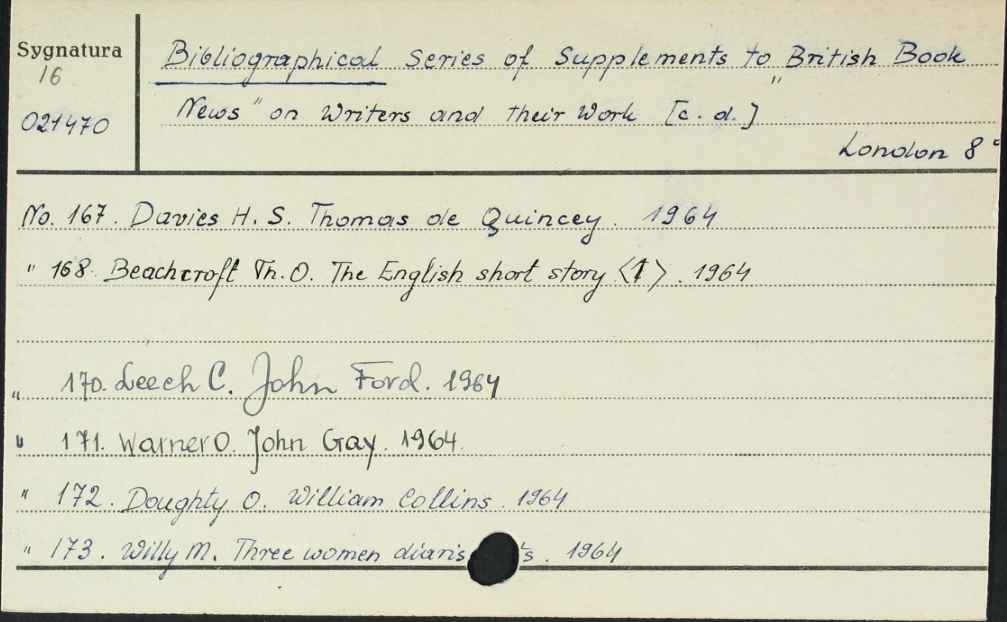 Sygnatura
16
021470
Bibliographical Series of Supplements to „British Book
News" on Writers and their Work [c. d.]
London 8°
No. 167. Davies H. S. Thomas de Quincey. 1964
" 168. Beachcroft Th. O. The English short story <1>. 1964
" 170. Leech C. John Ford. 1964
" 171. Warner O. John Gay. 1964.
" 172. Doughty O. William Collins. 1964
" 173. Willy M. Three women diaris ts. 1964